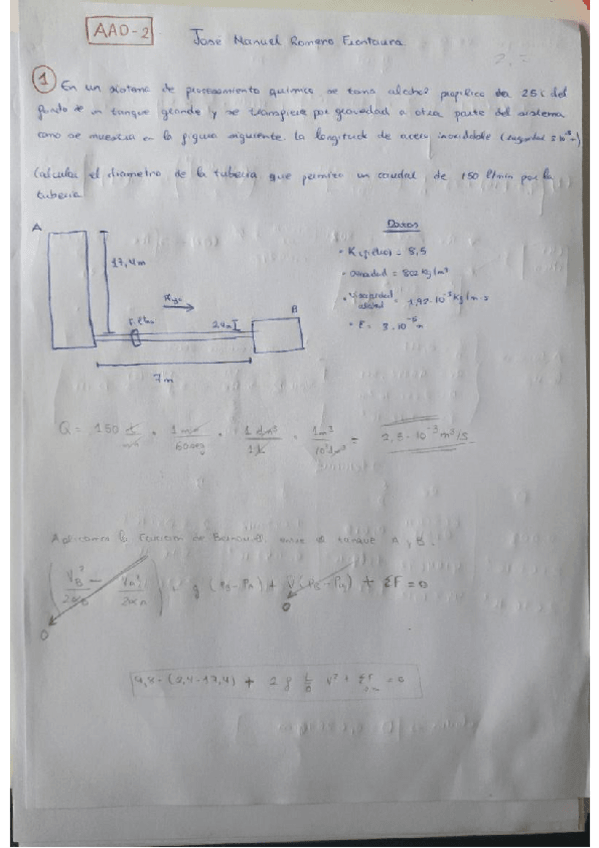 AAD-2
José Manuel Romero Fuentaura
1 En un sistema de procesamiento químico se toma alcohol propílico 25 del
fondo de un tanque grande y se transfiere por gravedad a otra parte del sistema
como se muestra en la figura siguiente. La longitud de acero inoxidable (rugosidad 3·10⁻⁵ m)
Calcular el diametro de la tubería que permite un caudal de 150 l/min por la
tubería
A
Datos
17,4m
K = 8,5
Densidad = 802 kg/m³
Viscosidad = 1,92·10⁻³ kg/m·s
E = 3·10⁻⁵ m
Filtro
2,4m
B
7m
Q = 150 · 1 min / 60 seg · 1 dm³ / 1 l · 1m³ / 10³ dm³ = 2,5·10⁻³ m³/s
Aplicamos la Ecuación de Bernoulli entre el tanque A y B.
(V_B² / 2α_B − V_A² / 2α_A) + g (z_B - z_A) + V(P_B - P_A) + ΣF = 0
0
0
(2,4-17,4) + 2 f L/D v² + ΣF = 0